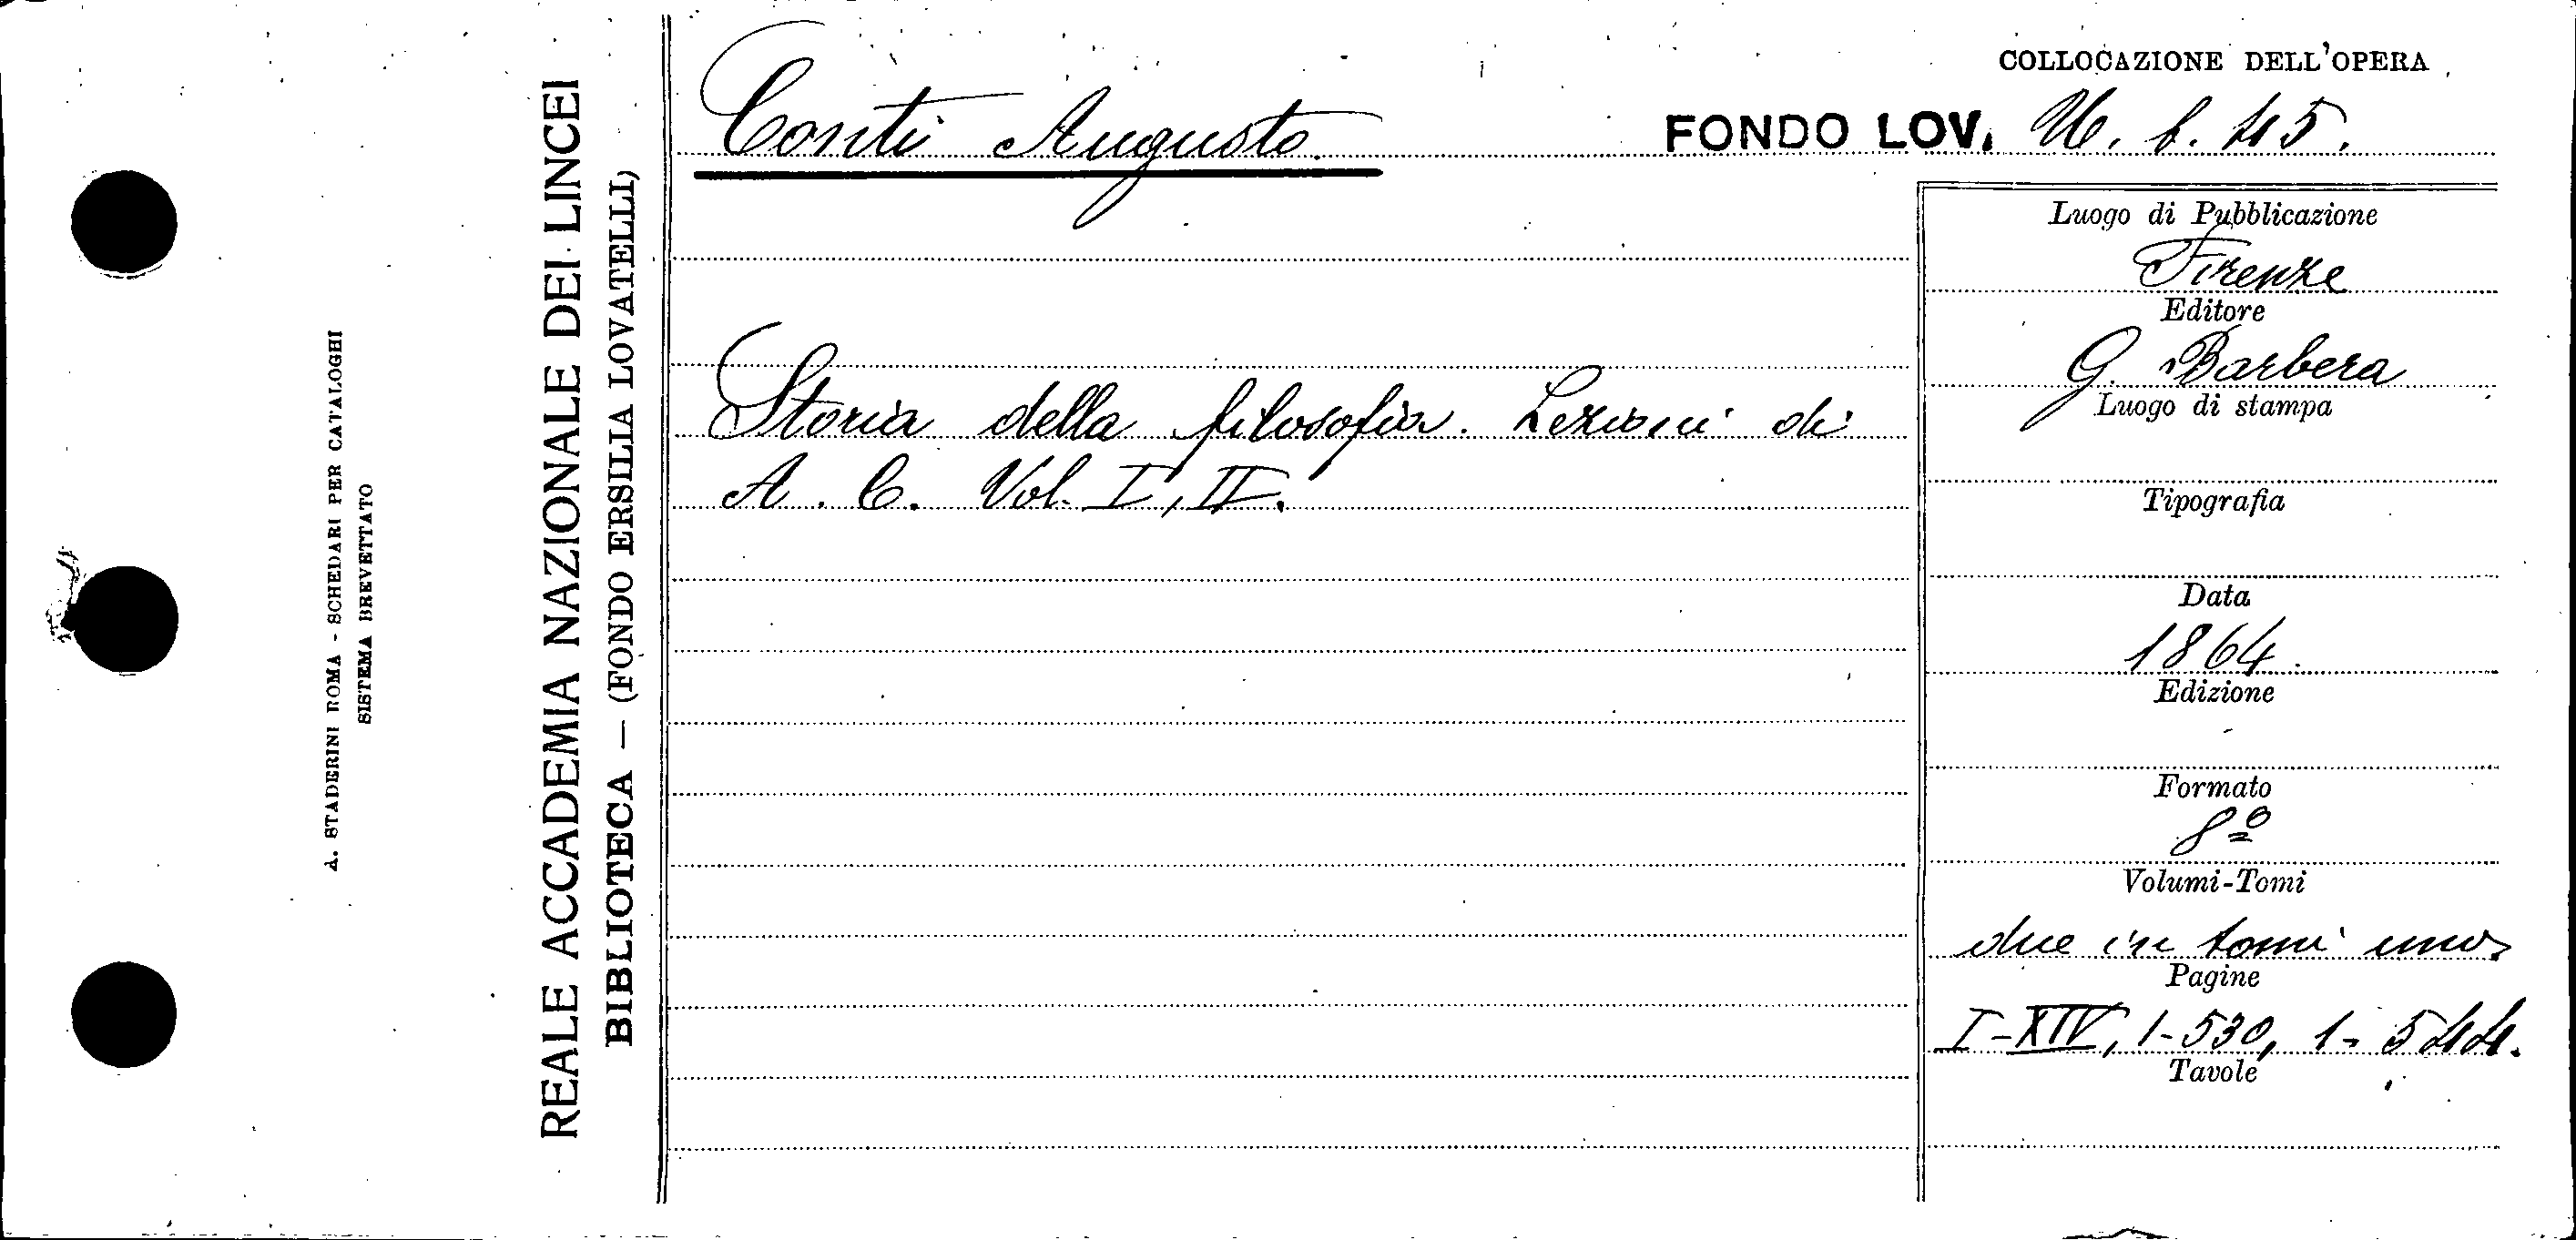 A. STADERINI ROMA - SCHEDARI PER CATALOGHI
SISTEMA BREVETTATO
REALE ACCADEMIA NAZIONALE DEI LINCEI
BIBLIOTECA — (FONDO ERSILIA LOVATELLI)
Conti Augusto.
COLLOCAZIONE DELL'OPERA
FONDO LOV. 45.
Storia della filosofia. Lezioni di
A. C. Vol. I, II.
Luogo di Pubblicazione
Firenze
Editore
G. Barbera
Luogo di stampa
Tipografia
Data
1864.
Edizione
-
Formato
8º
Volumi-Tomi
due in tomi uno.
Pagine
I-XIV, 1-530, 1-544.
Tavole